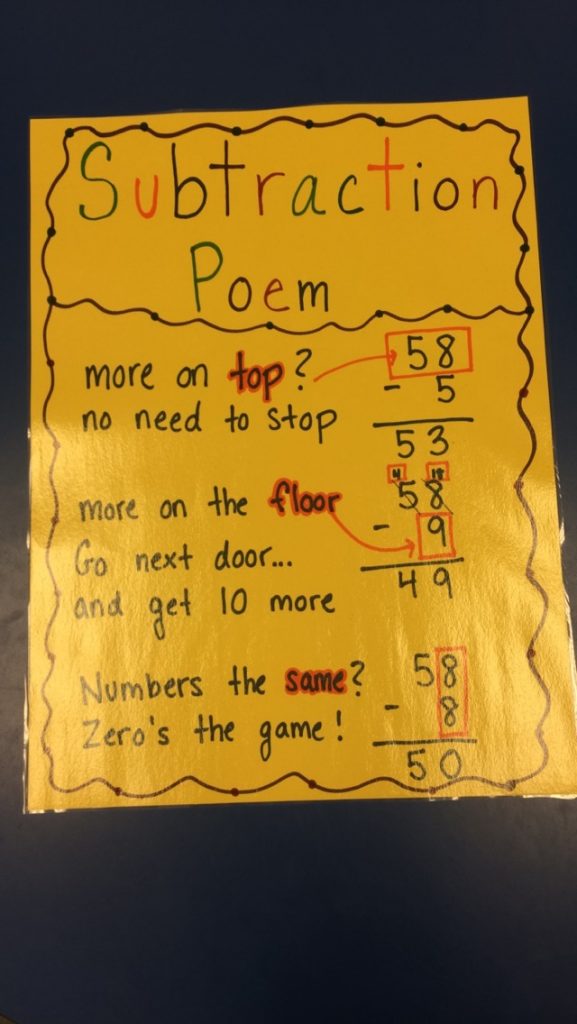 Subtraction
Poem
more on top?
no need to stop
58
- 5
53
more on the floor
Go next door...
and get 10 more
4 18
58
- 9
49
Numbers the same?
Zero's the game!
58
- 8
50